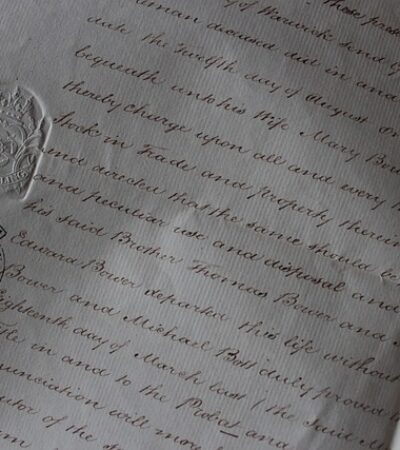 of Warwick send these pres
man deceased did in and
date the Twelfth day of August On
bequeath unto his Wife Mary Bow
thereby charge upon all and every
Stock in Trade and property therein
and directed that the same should be
and peculiar use and disposal and
his said Brother Thomas Bower and
Edward Bower departed this life without
Bower and Michael Bott duly proved
Eighteenth day of March last / the said M
in and to the Probat and
nunciation will more
utor of the